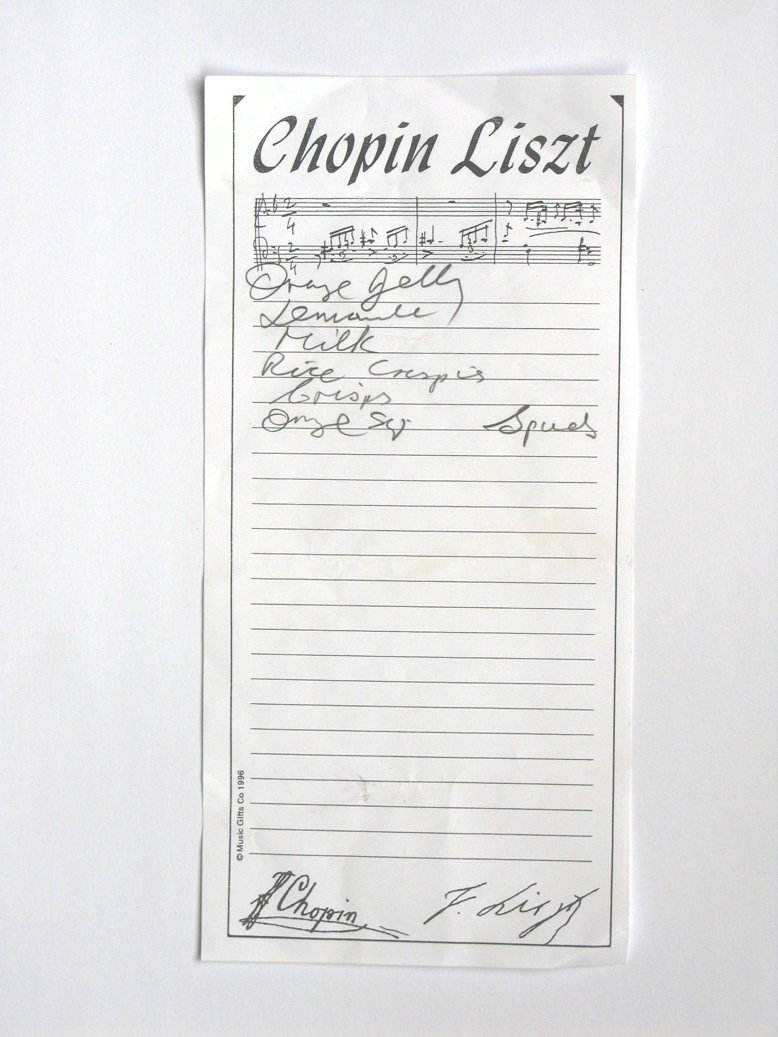 Chopin Liszt
Orange Jelly
Lemonade
Milk
Rice Crispis
Crisps
Orange Sq. Spuds
© Music Gifts Co 1996
F Chopin
F. Liszt